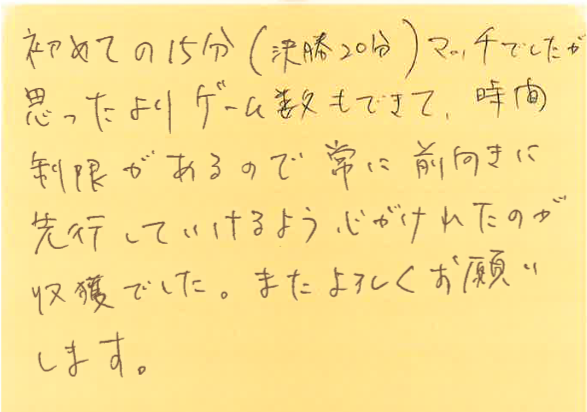 初めての15分(決勝20分)マッチでしたが
思ったよりゲーム数もできて、時間
制限があるので常に前向きに
先行していけるよう心がけれたのが
収獲でした。またよろしくお願い
します。